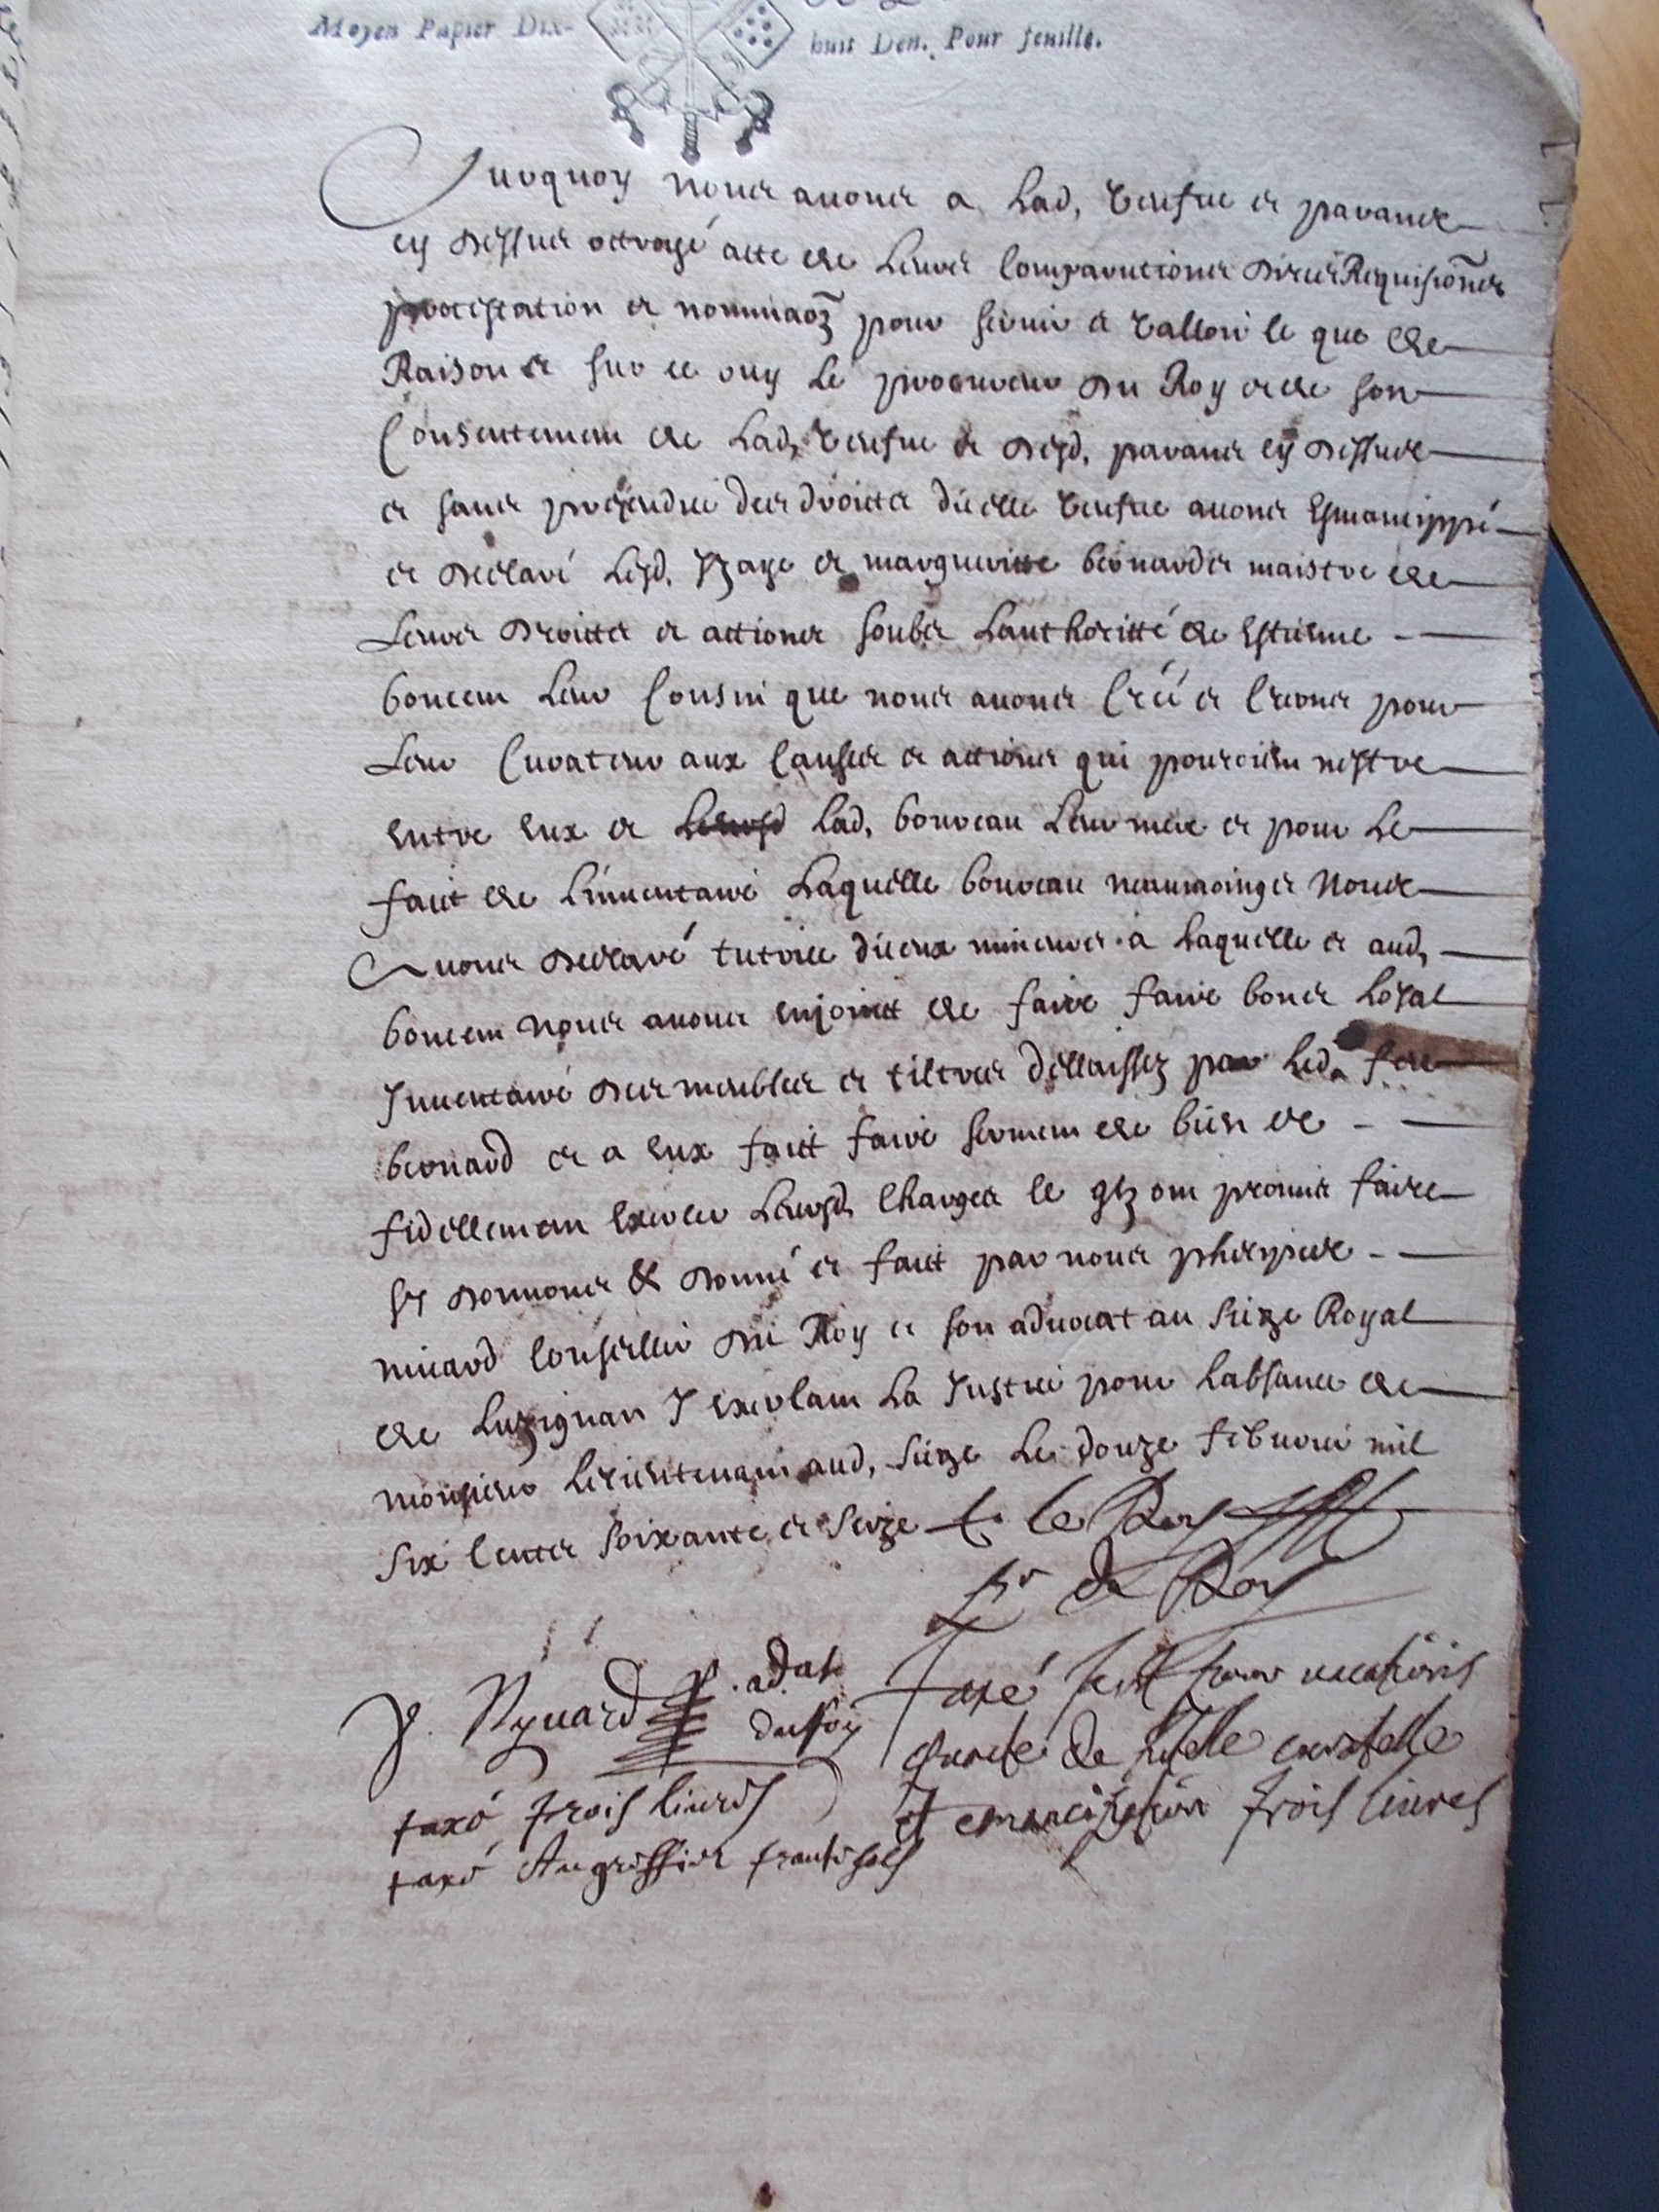 Moyen Papier Dix-huit Den. Pour feuille.
Surquoy nous avons a lad, veufve et parans
cy dessus octroyé acte de leurs comparutions dires Requisiõns
protestation et nominaõn pour servir et valloir ce que de
Raison et sur ce ouy le procureur du Roy et de son
Consentement de lad, veufve et desd, parans cy dessus
et sans prejudice des droicts d'icelle veufve avons Esmancippé
et declaré lesd, et margueritte bernards maistre de
Leurs droitts et actions soubs L'authoritté de Estienne
boucem leur Cousin que nous avons Créé et Creons pour
Leur Curateur aux causes et actions qui pouroient nestre
entre eux et lad, bonneau leur mere et pour le
faict de L'inventaire Laquelle bonneau neanmoings Nous
Avons declaré tutrice d'iceux mineurs a laquelle et aud,
boucem nous avons enjoinct de faire faire bon et loyal
Inventaire des meubles et tiltres dellaissez par led, feu
bernard et a eux faict faire sermem de bien et
fidellement Exercer leursd, Charges ce qlz ont promis faire
Sy donnons & donné et faict par nous
nicard Conseiller du Roy et son advocat au siege Royal
de Luzignan Y Exerceant La Justice pour L'absance de
monsieur le lieutenant aud, siege le douze febvrier mil
Six Cents soixante et seize le Roy
pr du Roy
Nycard adat
du Roy
Taxé pour vacations
de tutelle curatelle
et emancipation trois livres
taxé trois livres
taxé Au greffier trante sols